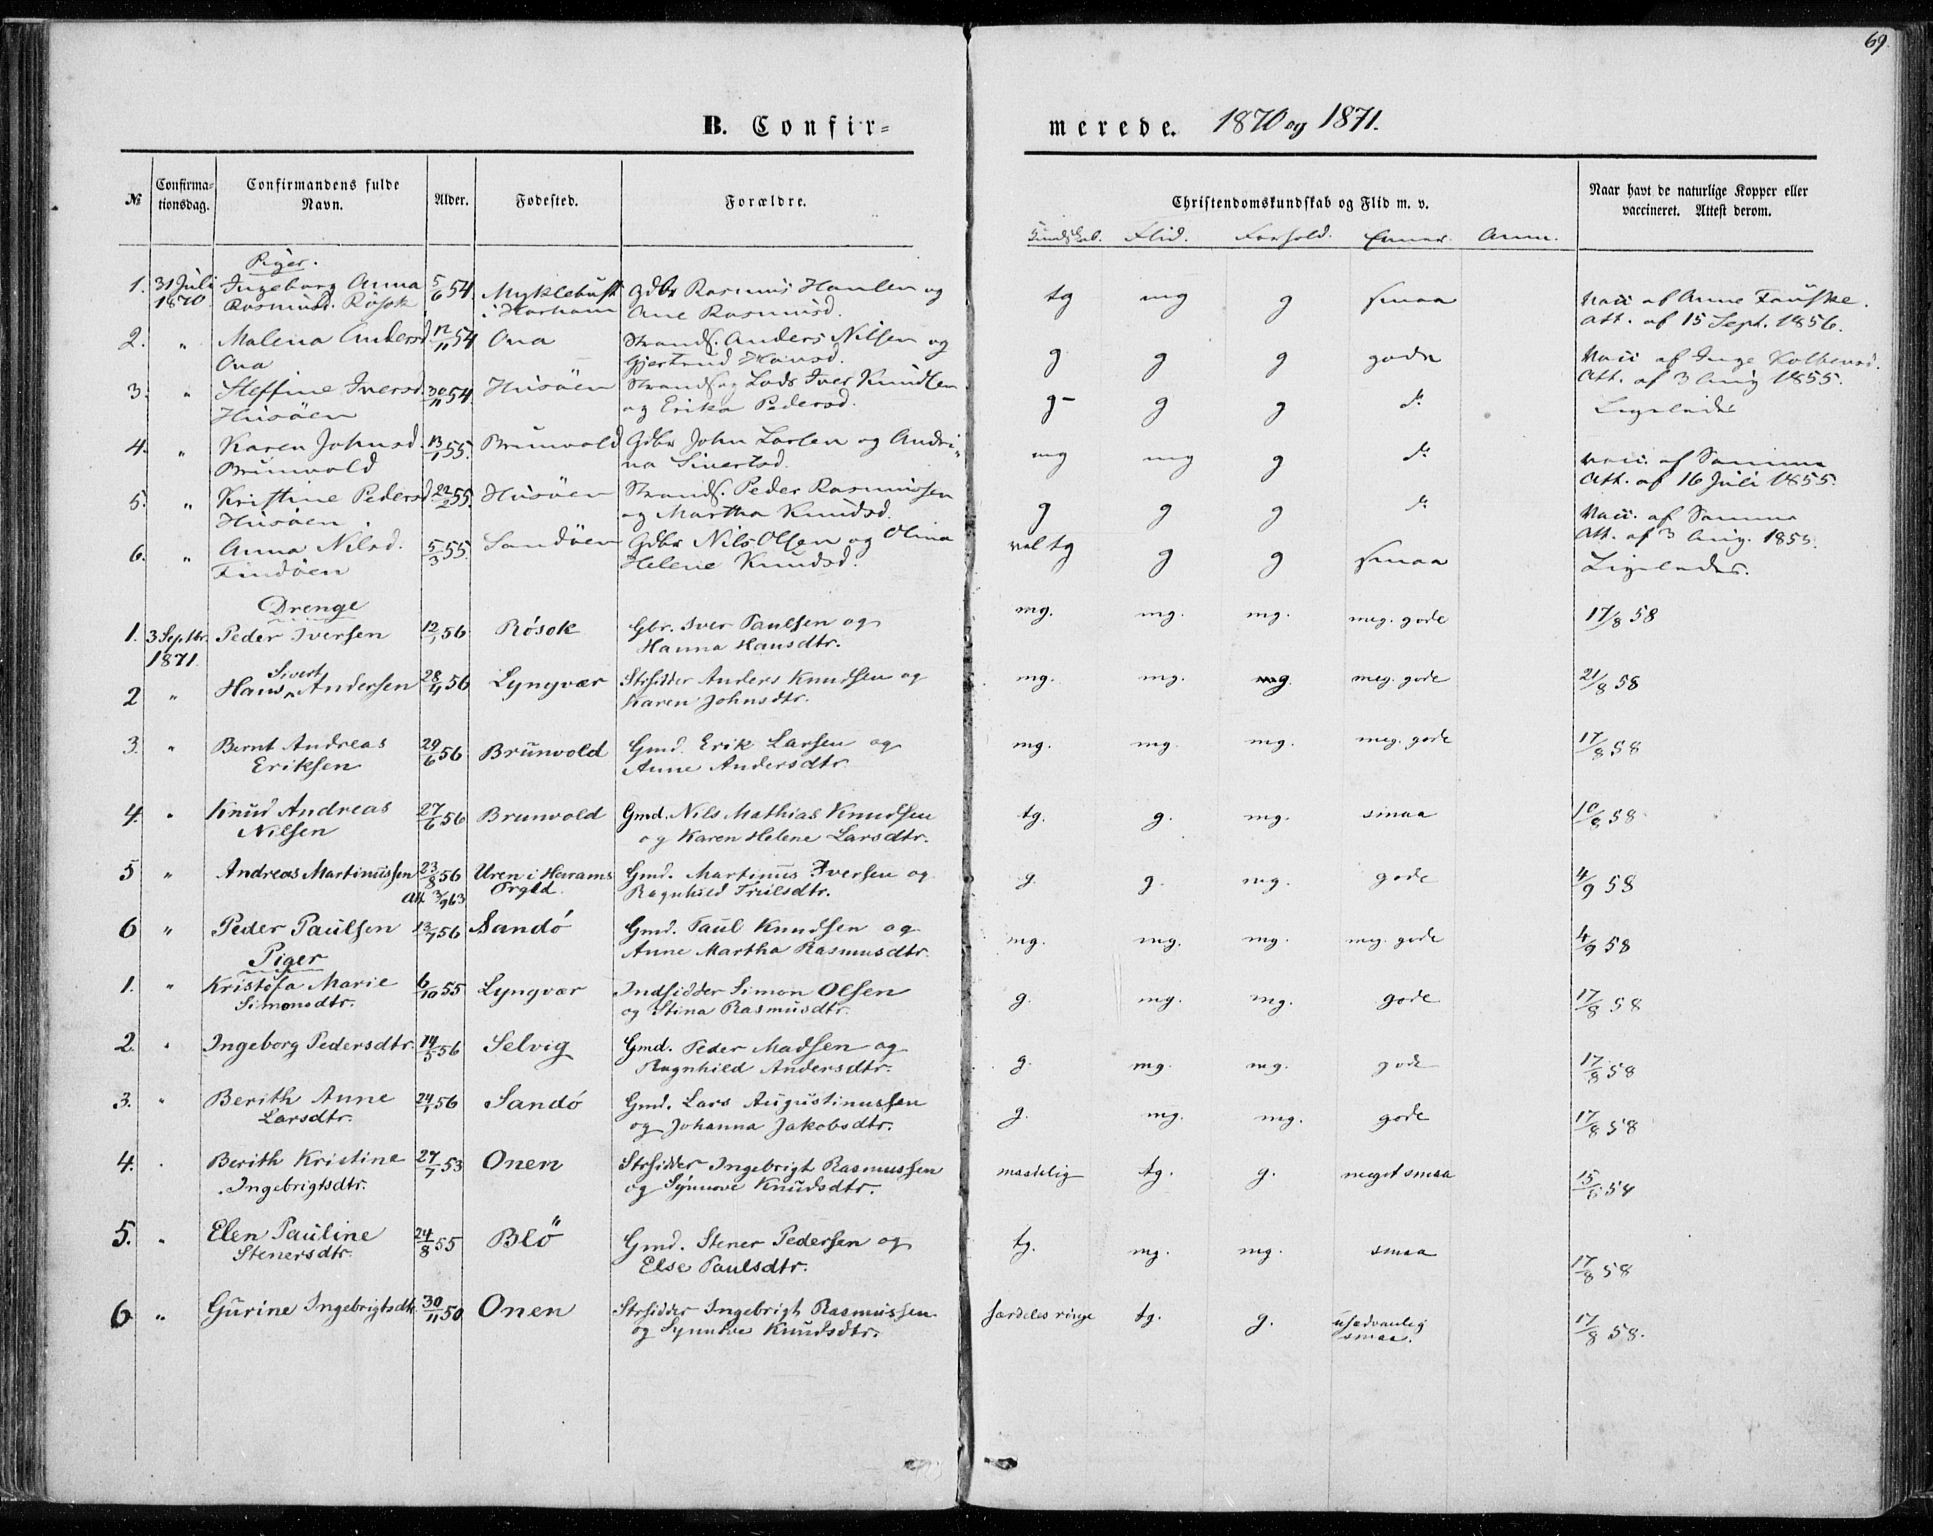 69
B. Confir= merede. 1870 og 1871.
№ Confirma=tionsdag. Confirmandens fulde Navn. Alder. Fødested. Forældre. Christendomskundskab og Flid m. v. Naar havt de naturlige Kopper eller vaccineret. Attest derom.
Kundskab. Flid. Forhold. Evner. Anm.
Piger.
1. 31 Juli Ingeborg Anna 5/6 54 Myklebust Gdbr Rasmus Hansen og tg mg g smaa Vacc af Anne Fauske.
1870 Rasmusd. Røsok i Harham Ane Rasmusd. Att. af 15 Sept. 1856.
2. " Malena Andersd 12/11 54 Ona Strands. Anders Nilsen og g g g gode Vacc af Inge
Ona Gjertrud Hansd. Att. af 3 Aug 1855.
3. " Steffine Iversd. 30/11 54. Husöen Strands og Lods Iver Knudsen g- g g do Ligeledes
Husöen og Erika Pedersd.
4. " Karen Johnsd. 13/1 55. Brunvold Gdbr John Larsen og Andri= mg mg g do vacc. af Samme
Brunvold na Sivertsd. Att. af 16 Juli 1855.
5. " Kristine Pedersd 22/2 55. Husöen Strands. Peder Rasmussen g g g do Vacc. af Samme
Husöen. og Martha Knudsd. Att. af 3 Aug. 1855.
6. " Anna Nilsd. 5/3 55. Sandöen Gdbr Nils Olsen og Olina vel tg g g smaa Ligeledes.
Findöen Helene Knudsd.
Drenge
1. 3 Septbr. Peder Iversen 12/1 56 Røsok Gbr. Iver Paulsen og mg. mg. mg. meg. gode 17/8 58
1871. Hanna Hansdtr.
2 " Hans Sivert Andersen 28/4 56 Lyngvær Strsidder Anders Knudsen og mg. mg. mg. meg. gode 21/8 58
Karen Johnsdtr.
3. " Bernt Andreas 29/6 56 Brunvold Gmd. Erik Larsen og mg. mg. mg. meg. gode 17/8 58
Eriksen Anne Andersdtr
4. " Knud Andreas 27/6 56 Brunvold Gmd. Nils Mathias Knudsen tg. g. mg. smaa 10/8 58.
Nilsen og Karen Helene Larsdtr.
5 " Andreas Martinussen 23/8 56 Uren i Harams Gmd. Martinus Iversen og g. g. mg. gode 4/9 58
att 3/9 63 Prgld. Ragnhild Trulsdtr.
6 " Peder Paulsen 13/7 56 Sandó Gmd. Paul Knudsen og mg. mg. mg. meg. gode 4/9 58
Anne Martha Rasmusdtr.
Piger
1. " Kristofa Marie 6/10 55 Lyngvær Indsidder Simon Olsen g. mg. mg. gode 17/8 58
Simonsdtr. og Stina Rasmusdtr.
2. " Ingeborg Pedersdtr. 14/5 56 Selvig Gmd. Peder Madsen og g. mg. mg. gode 17/8 58
Ragnhild Andersdtr.
3. " Berith Anne 24/1 56 Sandó Gmd. Lars Augustinussen g. mg. mg. gode 17/8 58
Larsdtr. og Johanna Jakobsdtr.
4. " Berith Kristine 27/7 53 Onen Strsidder Ingebrigt Rasmussen maadelig tg. g. meget smaa 54
Ingebrigtsdtr. og Synnove Knudsdtr.
5. " Elen Pauline 24/8 55 Blö Gmd. Stener Pedersen og tg. mg. mg. smaa 17/8 58
Stenersdtr. Else Paulsdtr.
6 " Gurine Ingebrigtsdtr. 30/11 50 Onen Strsidder Ingebrigt Rasmussen særdeles ringe tg. g. usædvanlig 17/8 58.
og Synnove Knudsdtr. smaa.